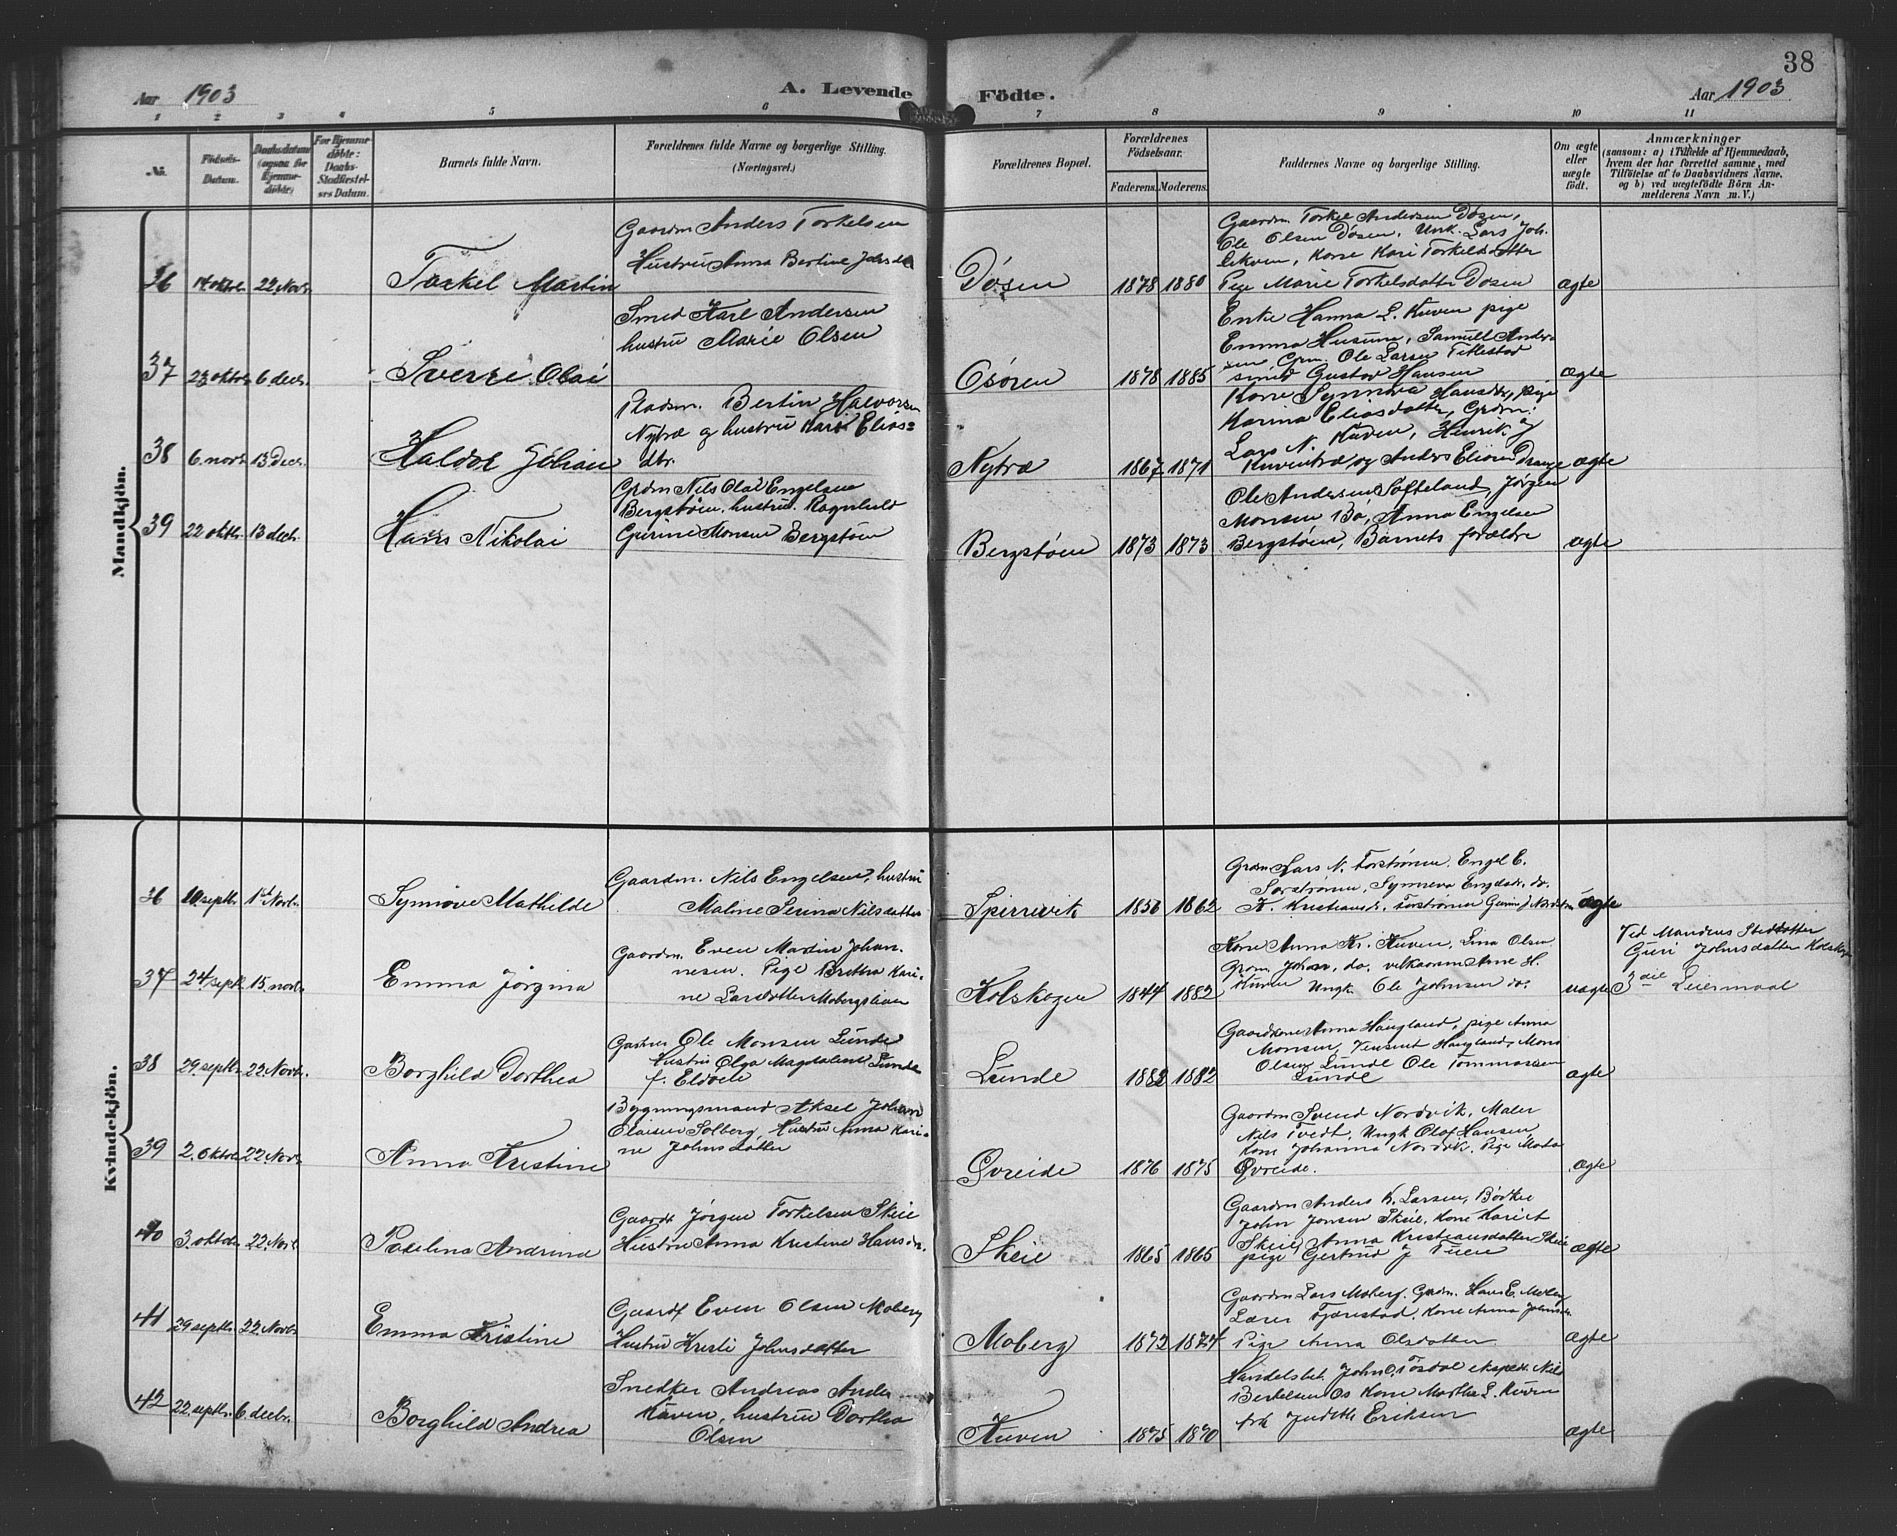 38
Aar 1903
A. Levende Födte.
Aar 1903
1 2 3 4 5 6 7 8 9 10 11
No.
Födsels-Datum.
Daabsdatum (ogsaa for Hjemmedöbte)
For Hjemmedöbte: Daabs-Stadfæstelsens Datum.
Barnets fulde Navn.
Forældrenes fulde Navne og borgerlige Stilling.
(Næringsvei.)
Forældrenes Bopæl.
Forældrenes Födselsaar.
Faderens. Moderens.
Faddernes Navne og borgerlige Stilling.
Om ægte eller uægte födt.
Anmærkninger
(saasom: a) i Tilfælde af Hjemmedaab, hvem der har forrettet samme, med Tilföielse af to Daabsvidners Navne. og b) ved uægtefödte Börn Anmelderens Navn m. V.)
Mandkjön.
36 14 oktbr. 22 Novbr.
Torkel Martin
Gaardm Anders Torkelsen
Hustru Anna Bertine
Døsen 1878 1880
Gaardm Torkel Andersen Døsen,
Ole Olsen Døsen, Unk. Lars Joh.
Lekven, Kone Kari Torkelsdatter
Pige Marie Torkelsdatter Døsen
ægte
37 23 oktbr 6 decbr.
Sverre Olai
Smed Karl Andersen
hustru Marie Olsen
Osøren 1878 1885
Enke Hanna L. Kuven pige
Emma Husum, Samuel Anders
sen Grm. Ole Larsen Tellestad
smed Gustav Hansen
ægte
38 6. novb 13 decbr.
Haldor Johan
Pladsm. Bertin Halvorsen
Nytræ og hustru Kari Elias=
dtr.
Nytræ 1867 1871
Kone Synnøva Hansdtr, pige
Karina Eliasdatter, Grdm:
Lars N. Kuven, Henrik
Kuventræ og Anders Drange
ægte
39 22 oktbr. 13 decbr.
Hans Nikolai
Grdm Nils Olai Engelsen
Bergstøen, hustru Ragnhild
Gurine Monsen Bergstøen
Bergstøen 1873 1873
Ole Andersen Søfteland, Jørgen
Monsen Bø, Anna Engelsen
Bergstøen, Barnets forældre
ægte
Kvindekjön.
36 10 septbr. 1st Novbr.
Synnøve Mathilde
Gaardm. Nils Engelsen, hustru
Maline Serina Nilsdatter
Spirrevik 1856 1862
Grdm Lars N. Forstrønen, Engel E.
Forstrønen, Synneva Engelsdtr. do.
K. Kristiansdtr. Forstrønen
ægte
37 24/septb 15 novbr
Emma Jørgina
Gaardm. Even Martin Johan-
nesen. Pige Brettha Kari-
ne Larsdatter Mobergslien
Kolskogen 1844 1882
Kone Anna Kr. Kuven, Lina Olsen
Grdm. Johan, do,
Kuven Ungk. Ole Johnsen do.
uægte
Ved Mandens Stedatter
Guri Johnsdatter
3die Leiermaal
38 29 septbr. 22 Novbr.
Borghild Dorthea
Ole Monsen Lunde
Hustru Olga Magdalene Lunde
f. Eldøen
Lunde 1882 1882
Gaardkone Anna Haugland, pige Anna
Monsen, Vensent Haugland, Mons
Olsen Lunde Ole Tommassen
Lunde
ægte
39 2. oktbr 22 Novbr
Anna Kristine
Bygningsmand Aksel Johan
Olaisen Solberg, Hustru Anna Kari-
ne Johnsdatter
Øvreide 1876 1875
Gaardm Svend Nordvik, Maler
Nils Tvedt, Ungk Olaf Hansen
Kone Johanna Nordvik. Pige Marta
Øvreide.
ægte
40 3. oktobr 22. Novb
Paulina Andrina
Gaardf Jørgen Torkelsen Skeie
Hustru Anna Kristine Hansdtr.
Skeie 1865 1865
Gaardm Anders K. Larsen, Bødker
John Jonsen Skeie, Kone Kari
Skeie, Anna Kristiansdatter Skeie
pige Gertrud J Tuen
ægte
41 29 septbr. 22 Novbr
Emma Kristine
Gaardf Even Olsen Moberg
Hustru Kresti Johnsdatter
Moberg 1872 1874
Gaardm Lars Moberg. Grdm. Hans E. Moberg
Lærer Kone Anna Johnsdtr
Pige Anna Olsdatter
ægte
42 22 septbr. 6 decbr.
Borghild Andrea
Snedker Andreas Anders
Kuven, hustru Dorthea
Olsen
Kuven 1875 1870
Handelsbet. John Tøsdal ekspedt. Nils
Bertelsen Os Kone Martha L. Kuven
frk Judithe Eriksen
ægte